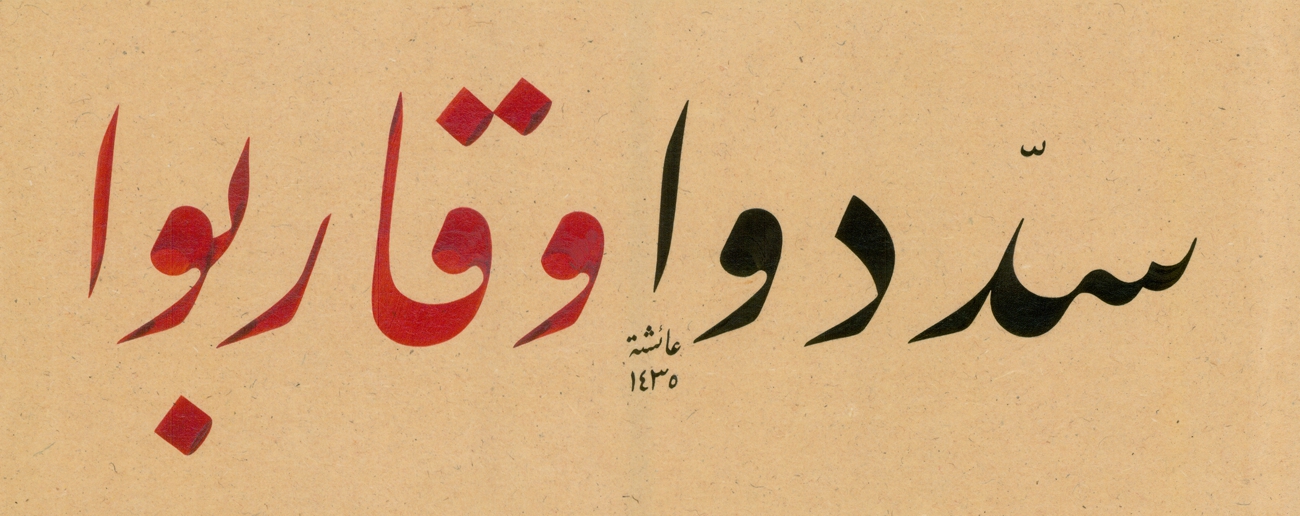 سدّدوا وقاربوا
عائشة
١٤٣٥